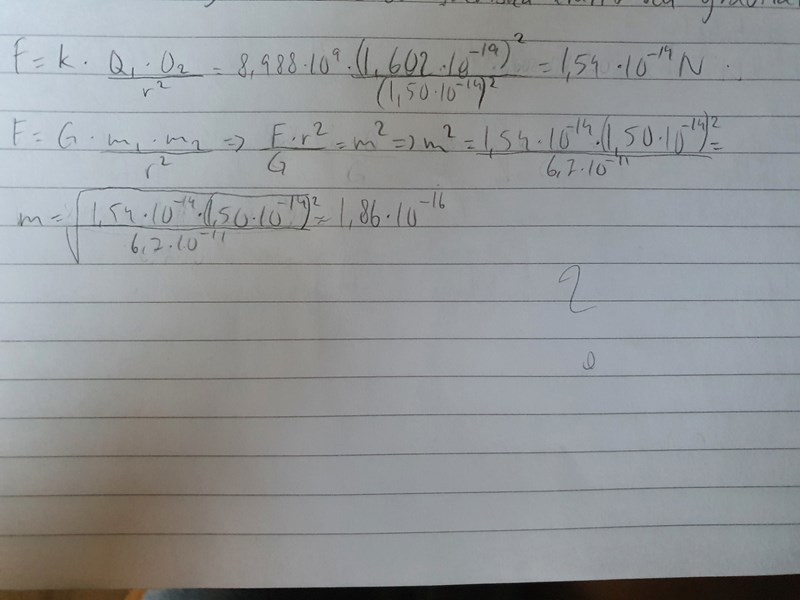 F = k · Q₁ · Q₂ / r² = 8,988 · 10⁹ · (1,602 · 10⁻¹⁹)² / (1,50 · 10⁻¹⁴)² = 1,54 · 10⁻¹⁴ N .
F = G · m₁ · m₂ / r² => F · r² / G = m² => m² = 1,54 · 10⁻¹⁴ · (1,50 · 10⁻¹⁴)² / 6,2 · 10⁻¹¹ =
m = √(1,54 · 10⁻¹⁴ · (1,50 · 10⁻¹⁴)² / 6,2 · 10⁻¹¹) = 1,86 · 10⁻¹⁶
?